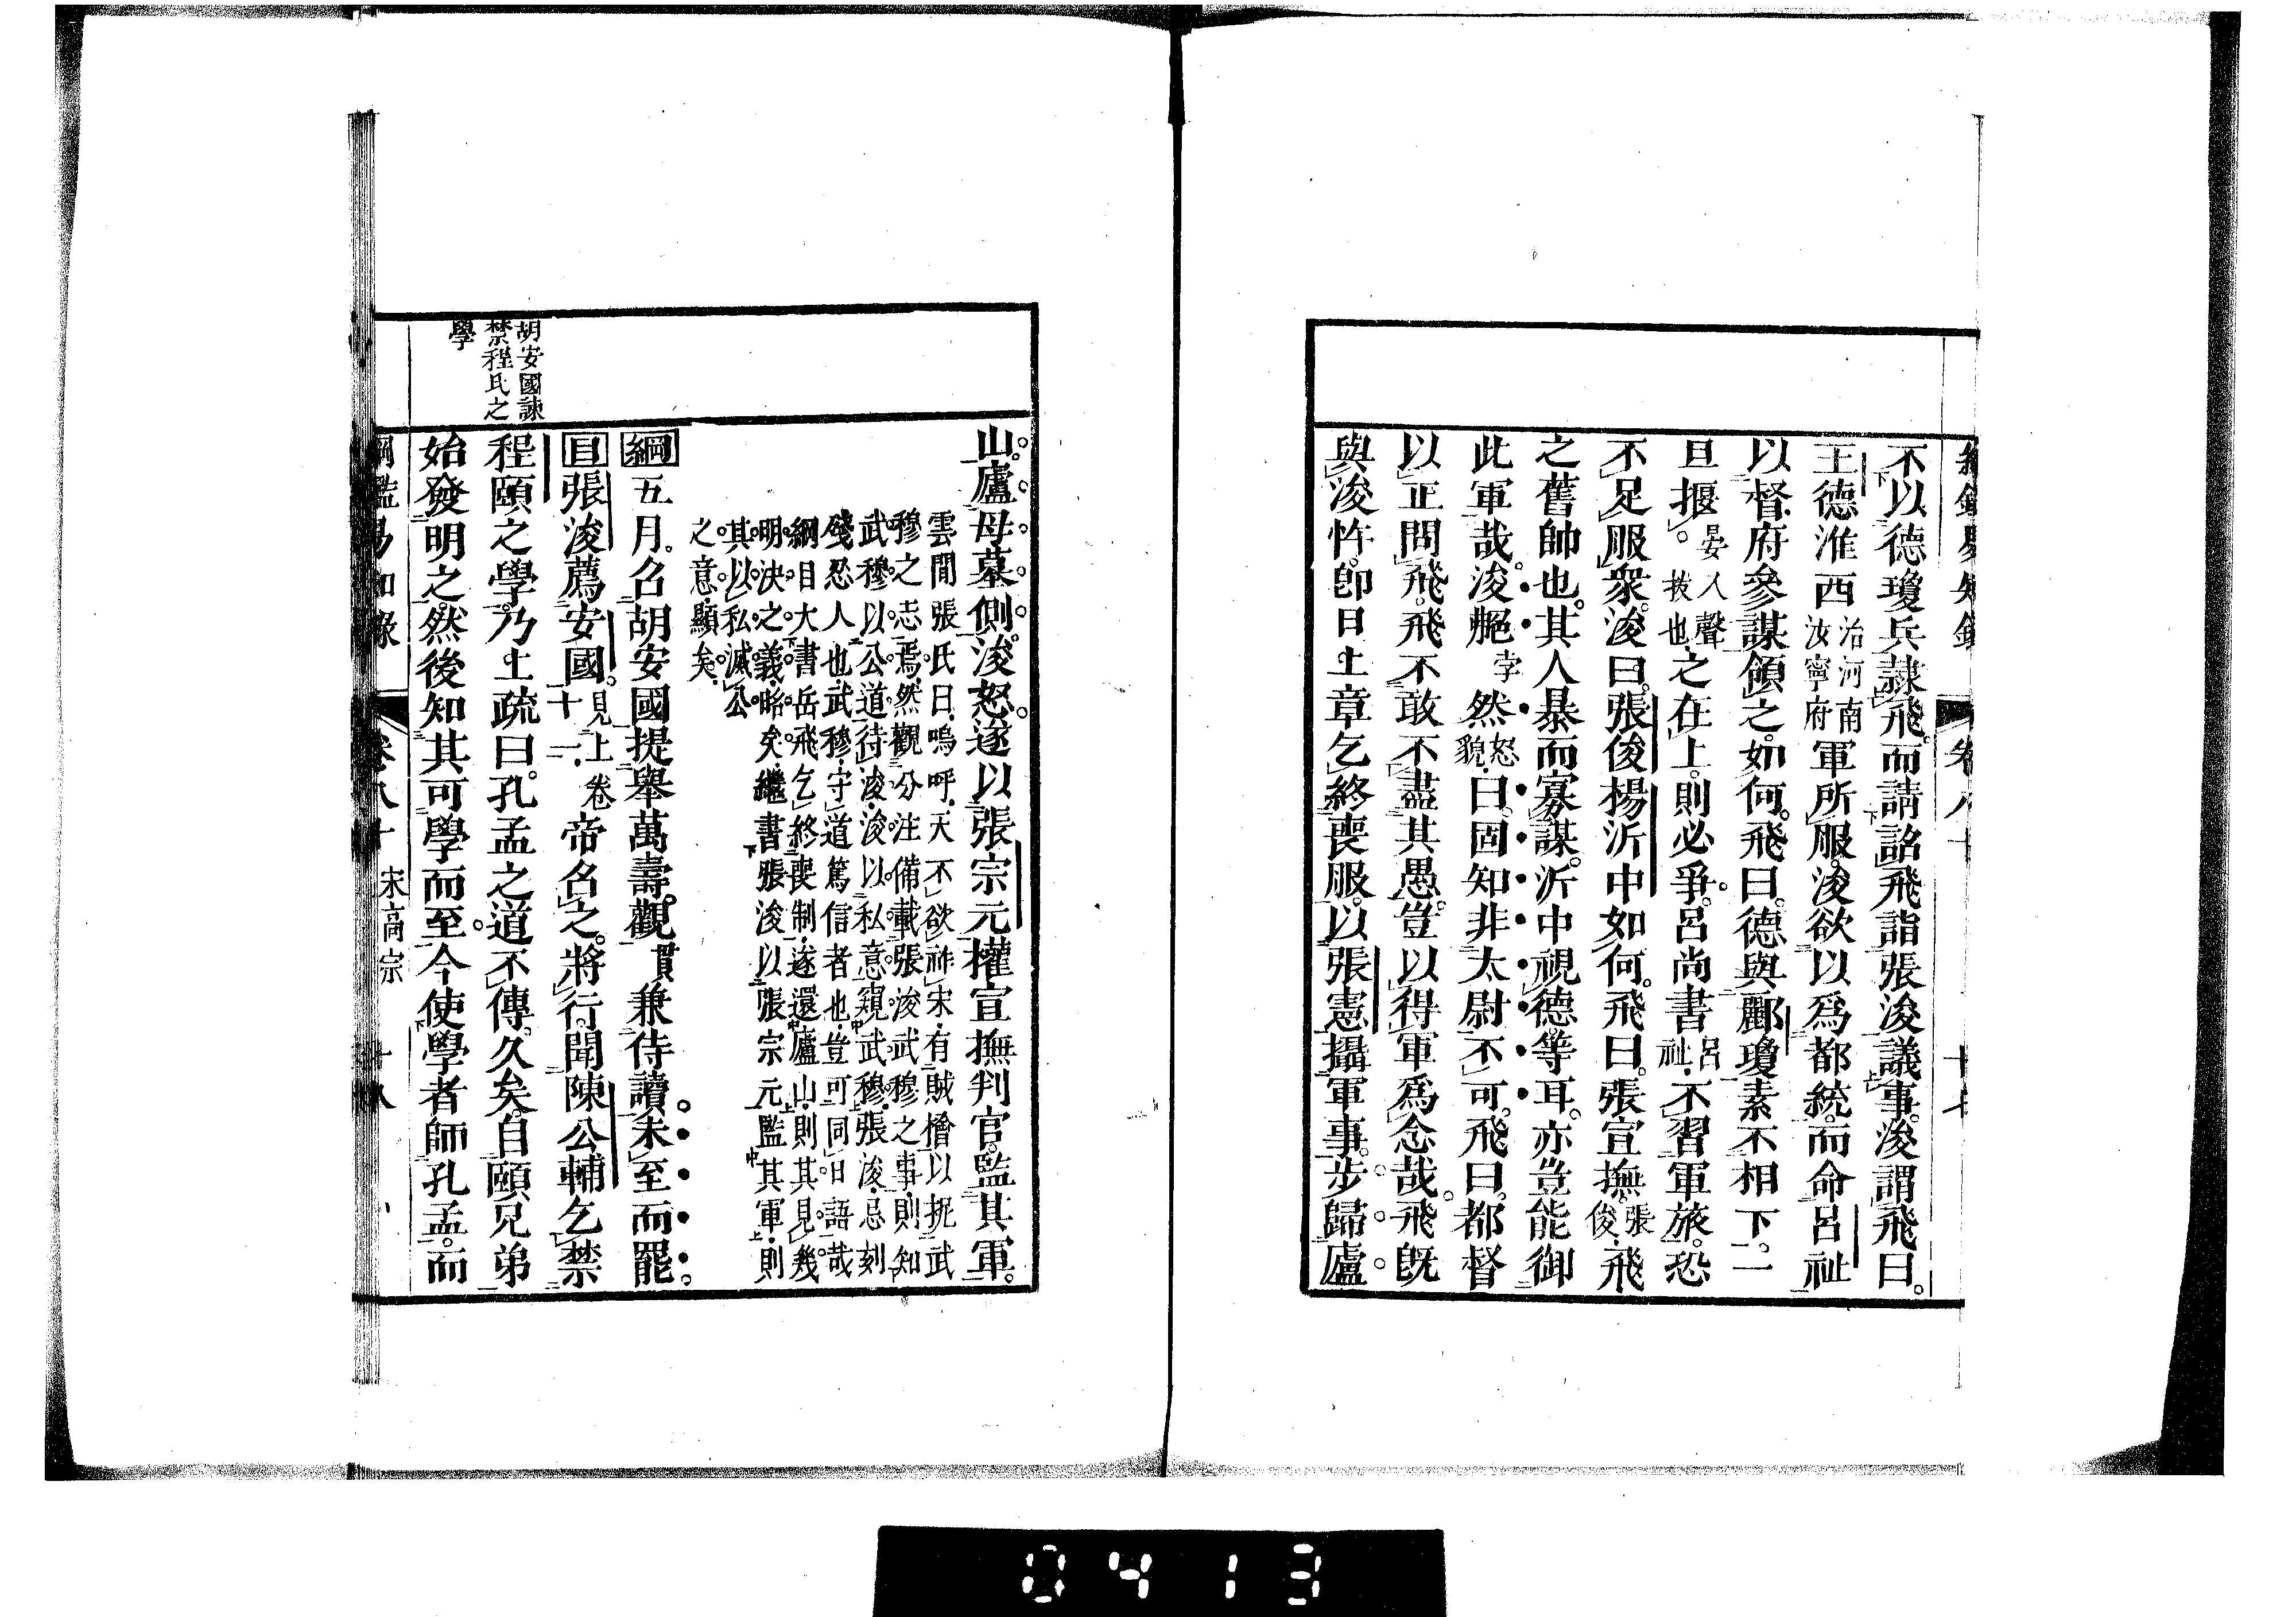 不以德瓊兵隷飛。而請詔飛詣張浚議事。浚謂飛曰。
王德淮西治河南汝寧府軍所服。浚欲以爲都統。而命呂祉
以督府參謀領之。如何。飛曰。德與酈瓊素不相下。一
旦揠。晏入聲拔也之在上。則必爭。呂尚書呂祉不習軍旅。恐
不足服衆。浚曰。張俊楊沂中如何。飛曰。張宣撫。張俊飛
之舊帥也。其人暴而寡謀。沂中視德等耳。亦豈能御
此軍哉。浚艴孛然怒貌曰。固知非太尉不可。飛曰。都督
以正問飛。飛不敢不盡其愚。豈以得軍爲念哉。飛旣
與浚忤。卽日上章乞終喪服。以張憲攝軍事。步歸廬
山。廬母墓側。浚怒。遂以張宗元權宣撫判官。監其軍。
雲間張氏曰。嗚呼。天不欲祚宋。有賊檜以扼武
穆之志焉。然觀分注備載張浚武穆之事。則知
武穆以公道待浚。浚以私意窺武穆。張浚忌刻
殘忍人也。武穆守道篤信者也。豈可同日語哉
綱目大書岳飛乞終喪制。遂還廬山。則其見幾
明決之義略矣。繼書張浚以張宗元監其軍。則
其以私滅公
之意顯矣。
綱五月。召胡安國提舉萬壽觀貫兼侍讀。未至而罷。
目張浚薦安國。見上卷十一。帝召之。將行。聞陳公輔乞禁
胡安國諫
禁程氏之
學
程頤之學。乃上疏曰。孔孟之道不傳久矣。自頤兄弟
始發明之。然後知其可學而至。今使學者師孔孟。而
綱鑑易知錄 卷八十 宋高宗 十八
0413